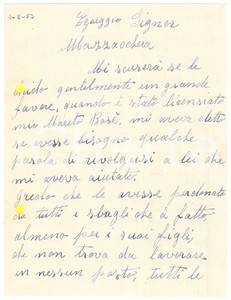 4-2-53
Egreggio Signor
Mazzacchera
Mi scuserà se le
chido gentilmente un grande
favore, quando è stato licensiato
mio Marito Bosè, mi aveva detto
se avesse bisogno qualche
parola di rivolgersi a lei che
mi aveva aiutato.
Credo che le avesse perdonato
di tutti i sbagli che à fatto,
almeno per i suoi figli,
che non trova da lavorare
in nessun posto, tutti le